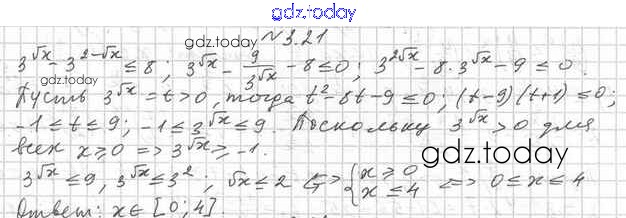 gdz.today
№3.21
gdz.today
3^√x - 3^(2-√x) ≤ 8; 3^√x - 9/3^√x - 8 ≤ 0; 3^(2√x) - 8·3^√x - 9 ≤ 0.
Пусть 3^√x = t > 0, тогда t² - 8t - 9 ≤ 0; (t-9)(t+1) ≤ 0;
-1 ≤ t ≤ 9; -1 ≤ 3^√x ≤ 9. Поскольку 3^√x > 0 для
всех x ≥ 0 => 3^√x ≥ -1.
gdz.today
3^√x ≤ 9, 3^√x ≤ 3²; √x ≤ 2 <=> { x ≥ 0 x ≤ 4 <=> 0 ≤ x ≤ 4
Ответ: x ∈ [0; 4].
gdz.today